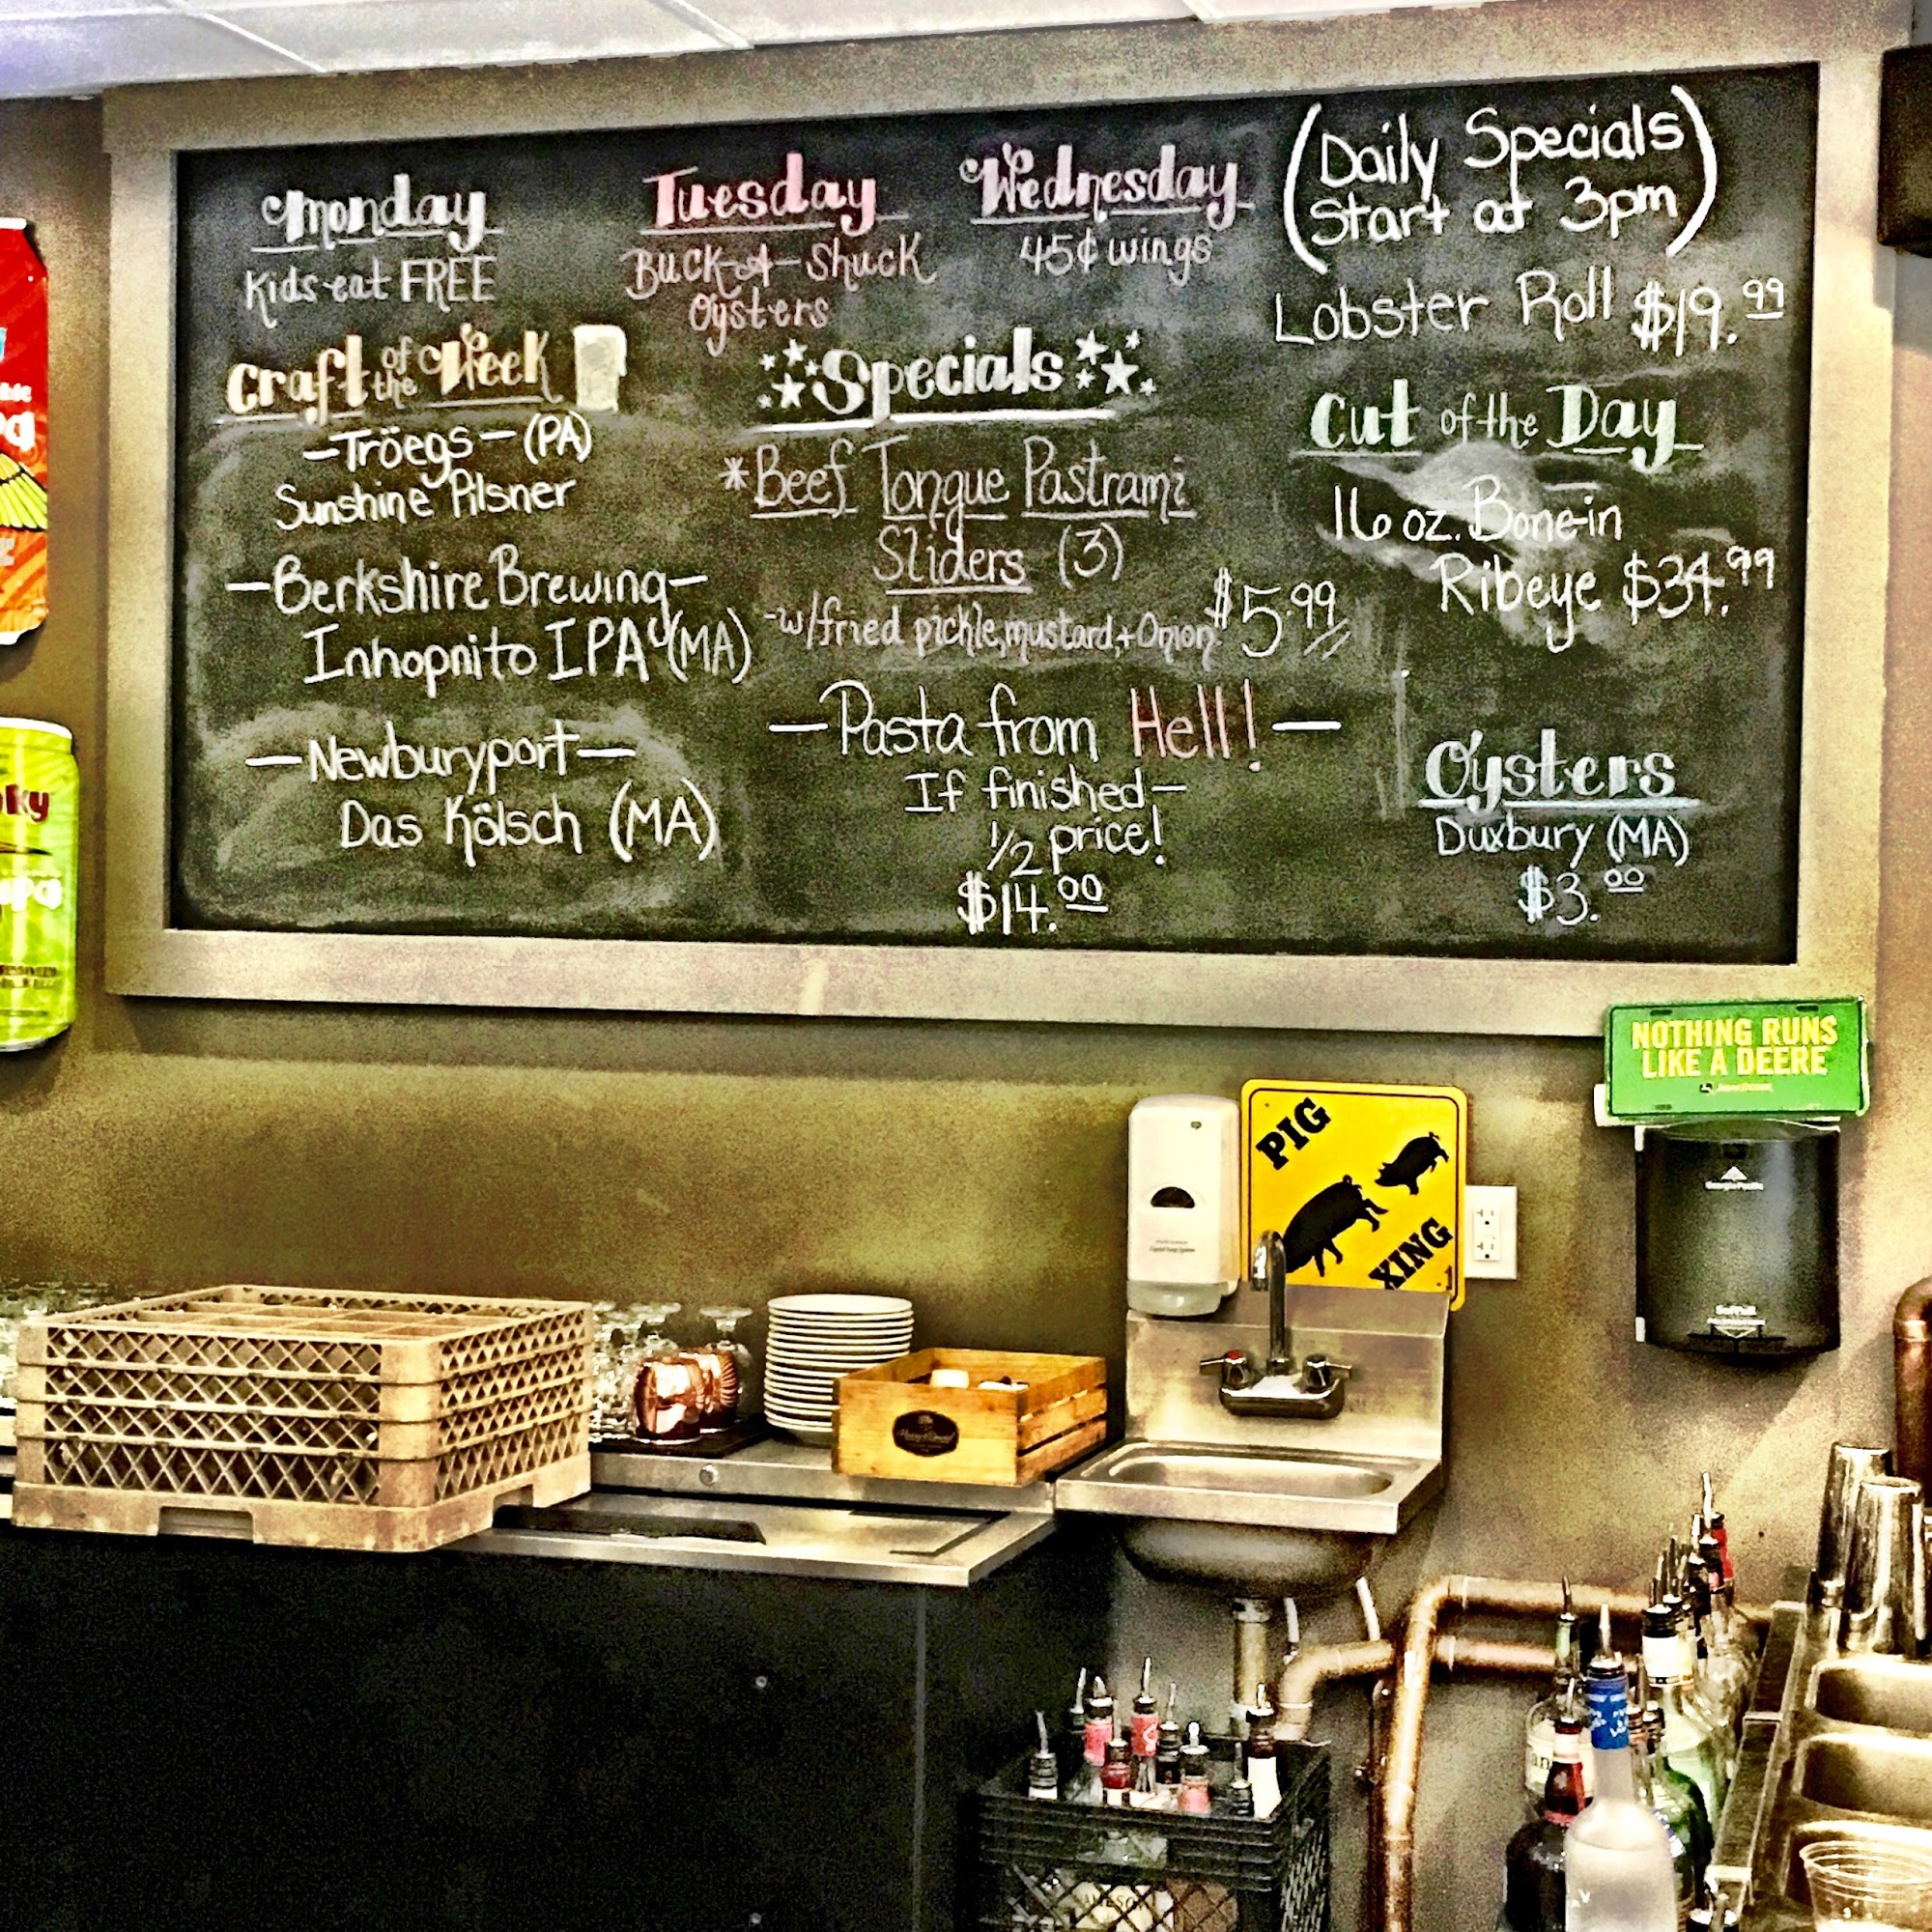 Monday
Kids eat FREE
Tuesday
BUCK-A-Shuck
Oysters
Wednesday
45¢ wings
(Daily Specials
Start at 3pm)
Lobster Roll $19.99
Craft of the Week
—Tröegs— (PA)
Sunshine Pilsner
—Berkshire Brewing—
Inhopnito IPA (MA)
—Newburyport—
Das Kölsch (MA)
Specials
*Beef Tongue Pastrami
Sliders (3)
-w/fried pickle, mustard, + Onion $5.99
—Pasta from Hell!—
If finished—
1/2 price!
$14.00
Cut of the Day
16 oz. Bone-in
Ribeye $34.99
Oysters
Duxbury (MA)
$3.00
NOTHING RUNS
LIKE A DEERE
PIG
XING